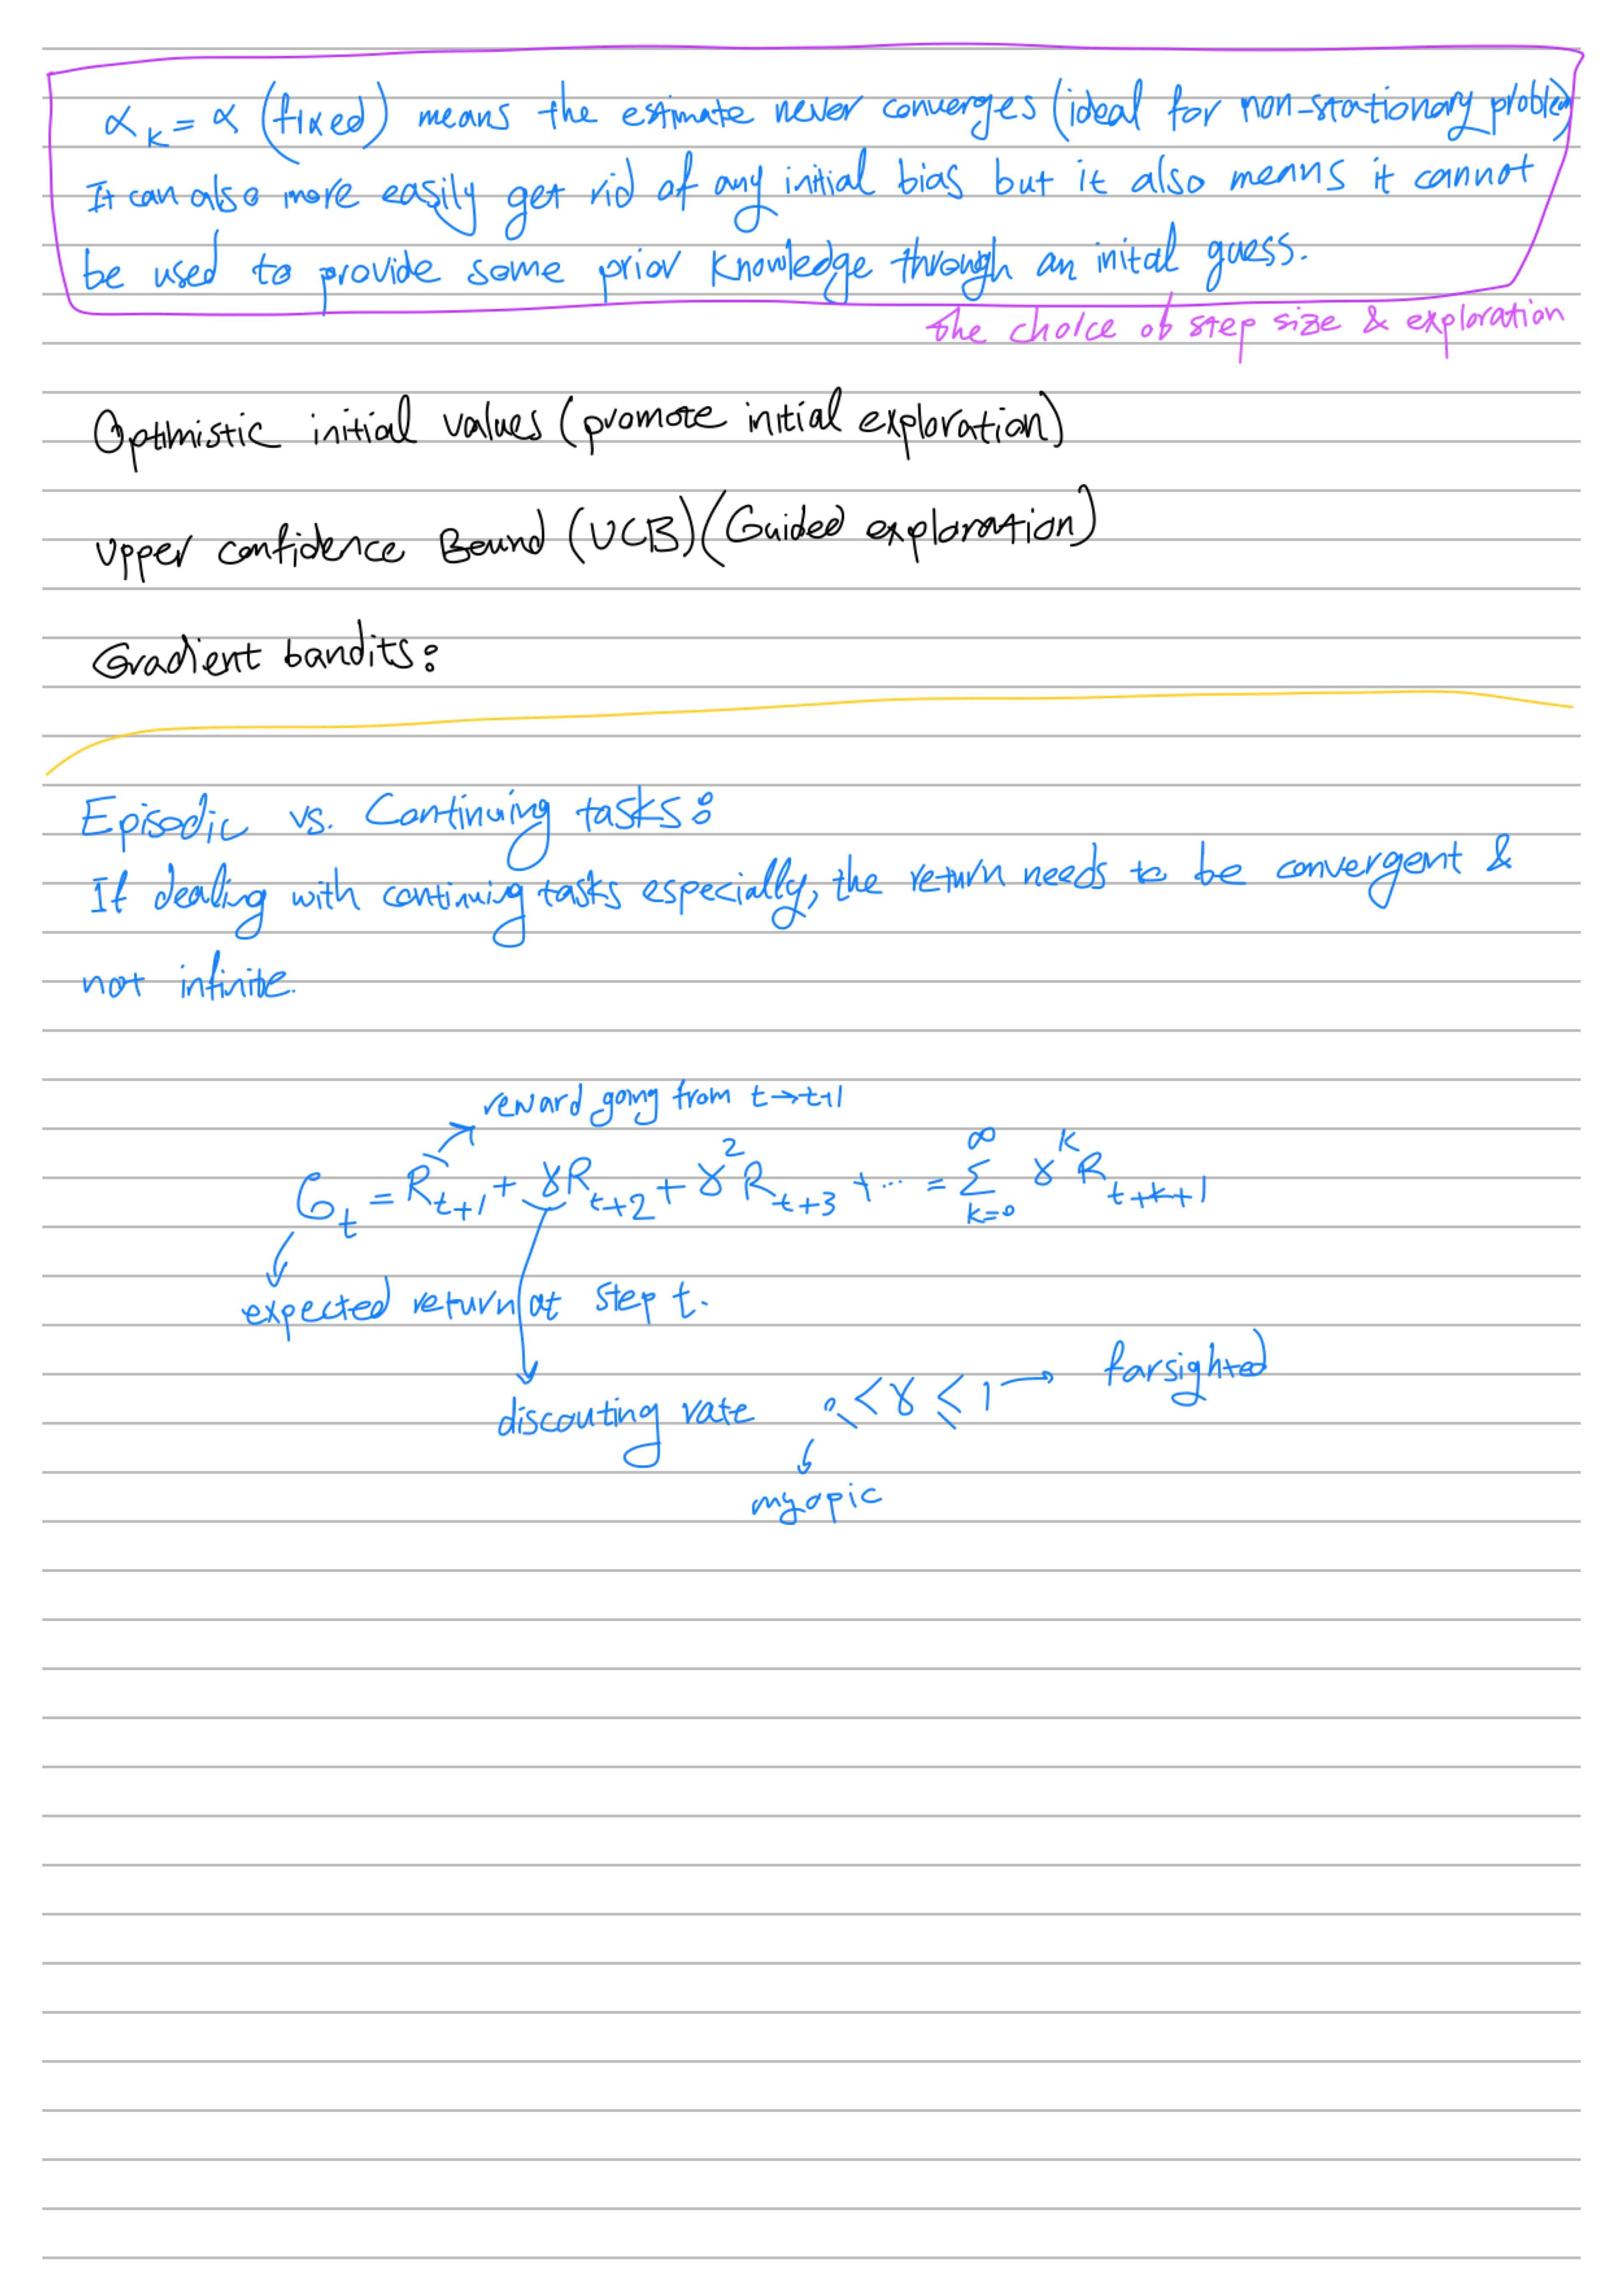 α_k = α (fixed) means the estimate never converges (ideal for non-stationary problem)
It can also more easily get rid of any initial bias but it also means it cannot
be used to provide some prior knowledge through an inital guess.
the choice of step size & exploration
Optimistic initial values (promote initial exploration)
Upper confidence Bound (UCB) (Guided exploration)
Gradient bandits:
Episodic vs. Continuing tasks:
If dealing with continuing tasks especially, the return needs to be convergent &
not infinite.
reward going from t→t+1
G_t = R_{t+1} + γR_{t+2} + γ²R_{t+3} + ... = Σ_{k=0}^{∞} γ^k R_{t+k+1}
expected return at step t.
discouting rate 0 ≤ γ ≤ 1 → farsighted
myopic